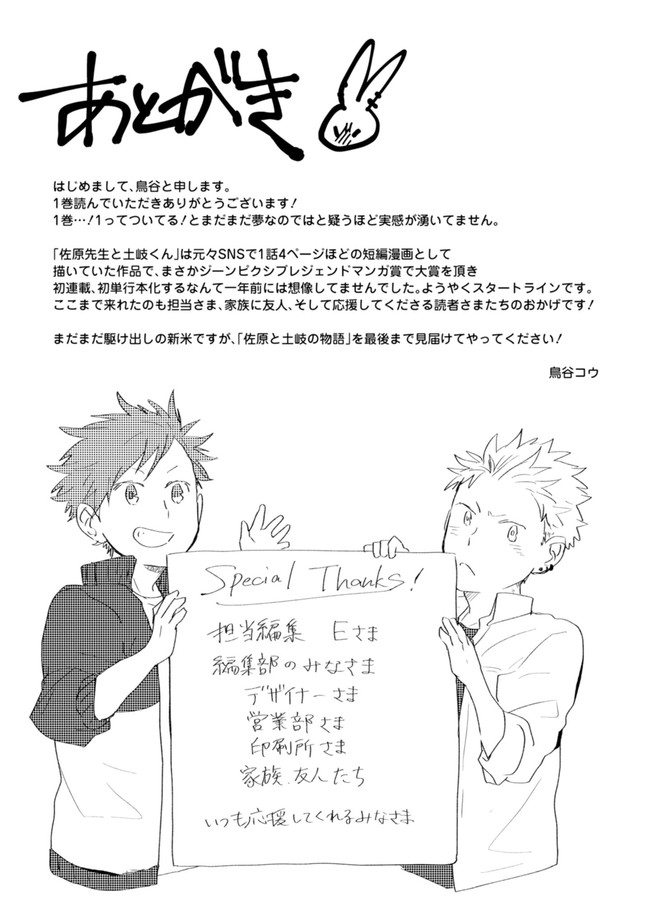 あとがき
はじめまして、鳥谷と申します。
1巻読んでいただきありがとうございます!
1巻…!1ってついてる!とまだまだ夢なのではと疑うほど実感が湧いてません。
「佐原先生と土岐くん」は元々SNSで1話4ページほどの短編漫画として
描いていた作品で、まさかジーンピクシブレジェンドマンガ賞で大賞を頂き
初連載、初単行本化するなんて一年前には想像してませんでした。ようやくスタートラインです。
ここまで来れたのも担当さま、家族に友人、そして応援してくださる読者さまたちのおかげです!
まだまだ駆け出しの新米ですが、「佐原と土岐の物語」を最後まで見届けてやってください!
鳥谷コウ
Special Thanks!
担当編集 Eさま
編集部のみなさま
デザイナーさま
営業部さま
印刷所さま
家族.友人たち
いつも応援してくれるみなさま